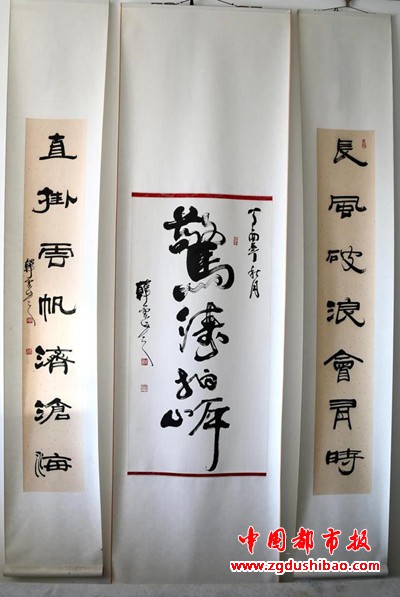 長風破浪會有時
丁酉年秋月
驚濤拍岸
直掛雲帆濟滄海
中国都市报
www.zgdushibao.com